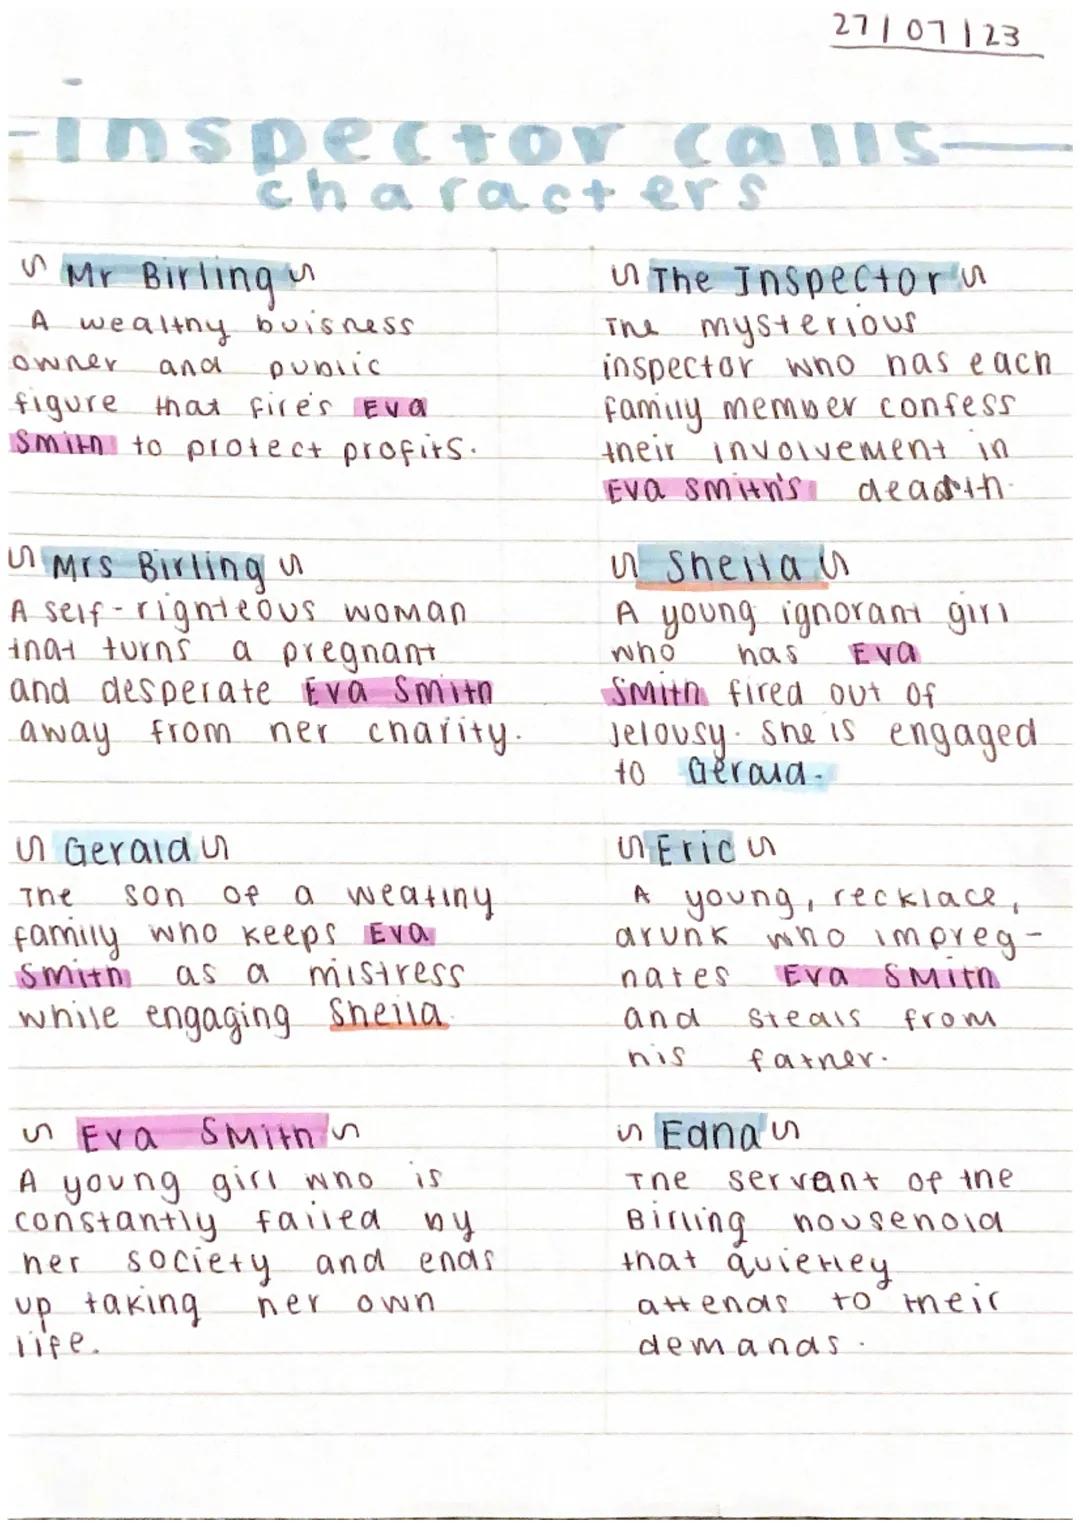 27/07/23
-inspector calls-
characters
Mr Birling
A wealthy buisness
owner and public
figure that fire's Eva
Smith to protect profits.
The Inspector
The mysterious
inspector who has each
family member confess
their involvement in
Eva Smith's death.
Mrs Birling
A self-righteous woman
that turns a pregnant
and desperate Eva Smith
away from her charity.
Sheila
A young ignorant girl
who has Eva
Smith fired out of
Jelousy. She is engaged
to Gerald.
Gerald
The son of a wealthy
family who keeps Eva
Smith as a mistress
while engaging Sheila.
Eric
A young, recklace,
drunk who impreg-
nates Eva Smith
and steals from
his father.
Eva Smith
A young girl who is
constantly failed by
her society and ends
up taking her own
life.
Edna
The servant of the
Birling household
that quietley
attends to their
demands.